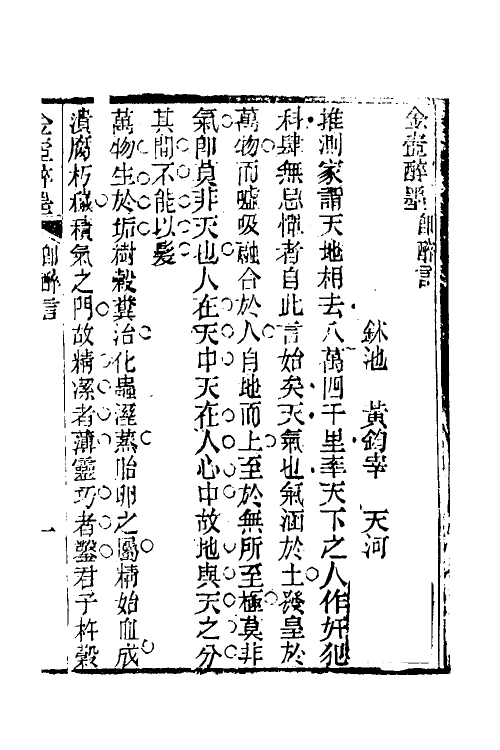 金壺醉墨 即醉言
鉢池 黃鈞宰 天河
推測家謂天地相去八萬四千里率天下之人作奸犯
科肆無忌憚者自此言始矣天氣也氣涵於土發皇於
萬物而噓吸融合於人自地而上至於無所至極莫非
氣即莫非天也人在天中天在人心中故地與天之分
其間不能以髮
萬物生於垢樹穀糞治化蟲溼蒸胎卵之屬精始血成
潰腐朽穢積氣之門故精潔者薄靈巧者鑿君子杵穀
金壺醉墨 即醉言 一